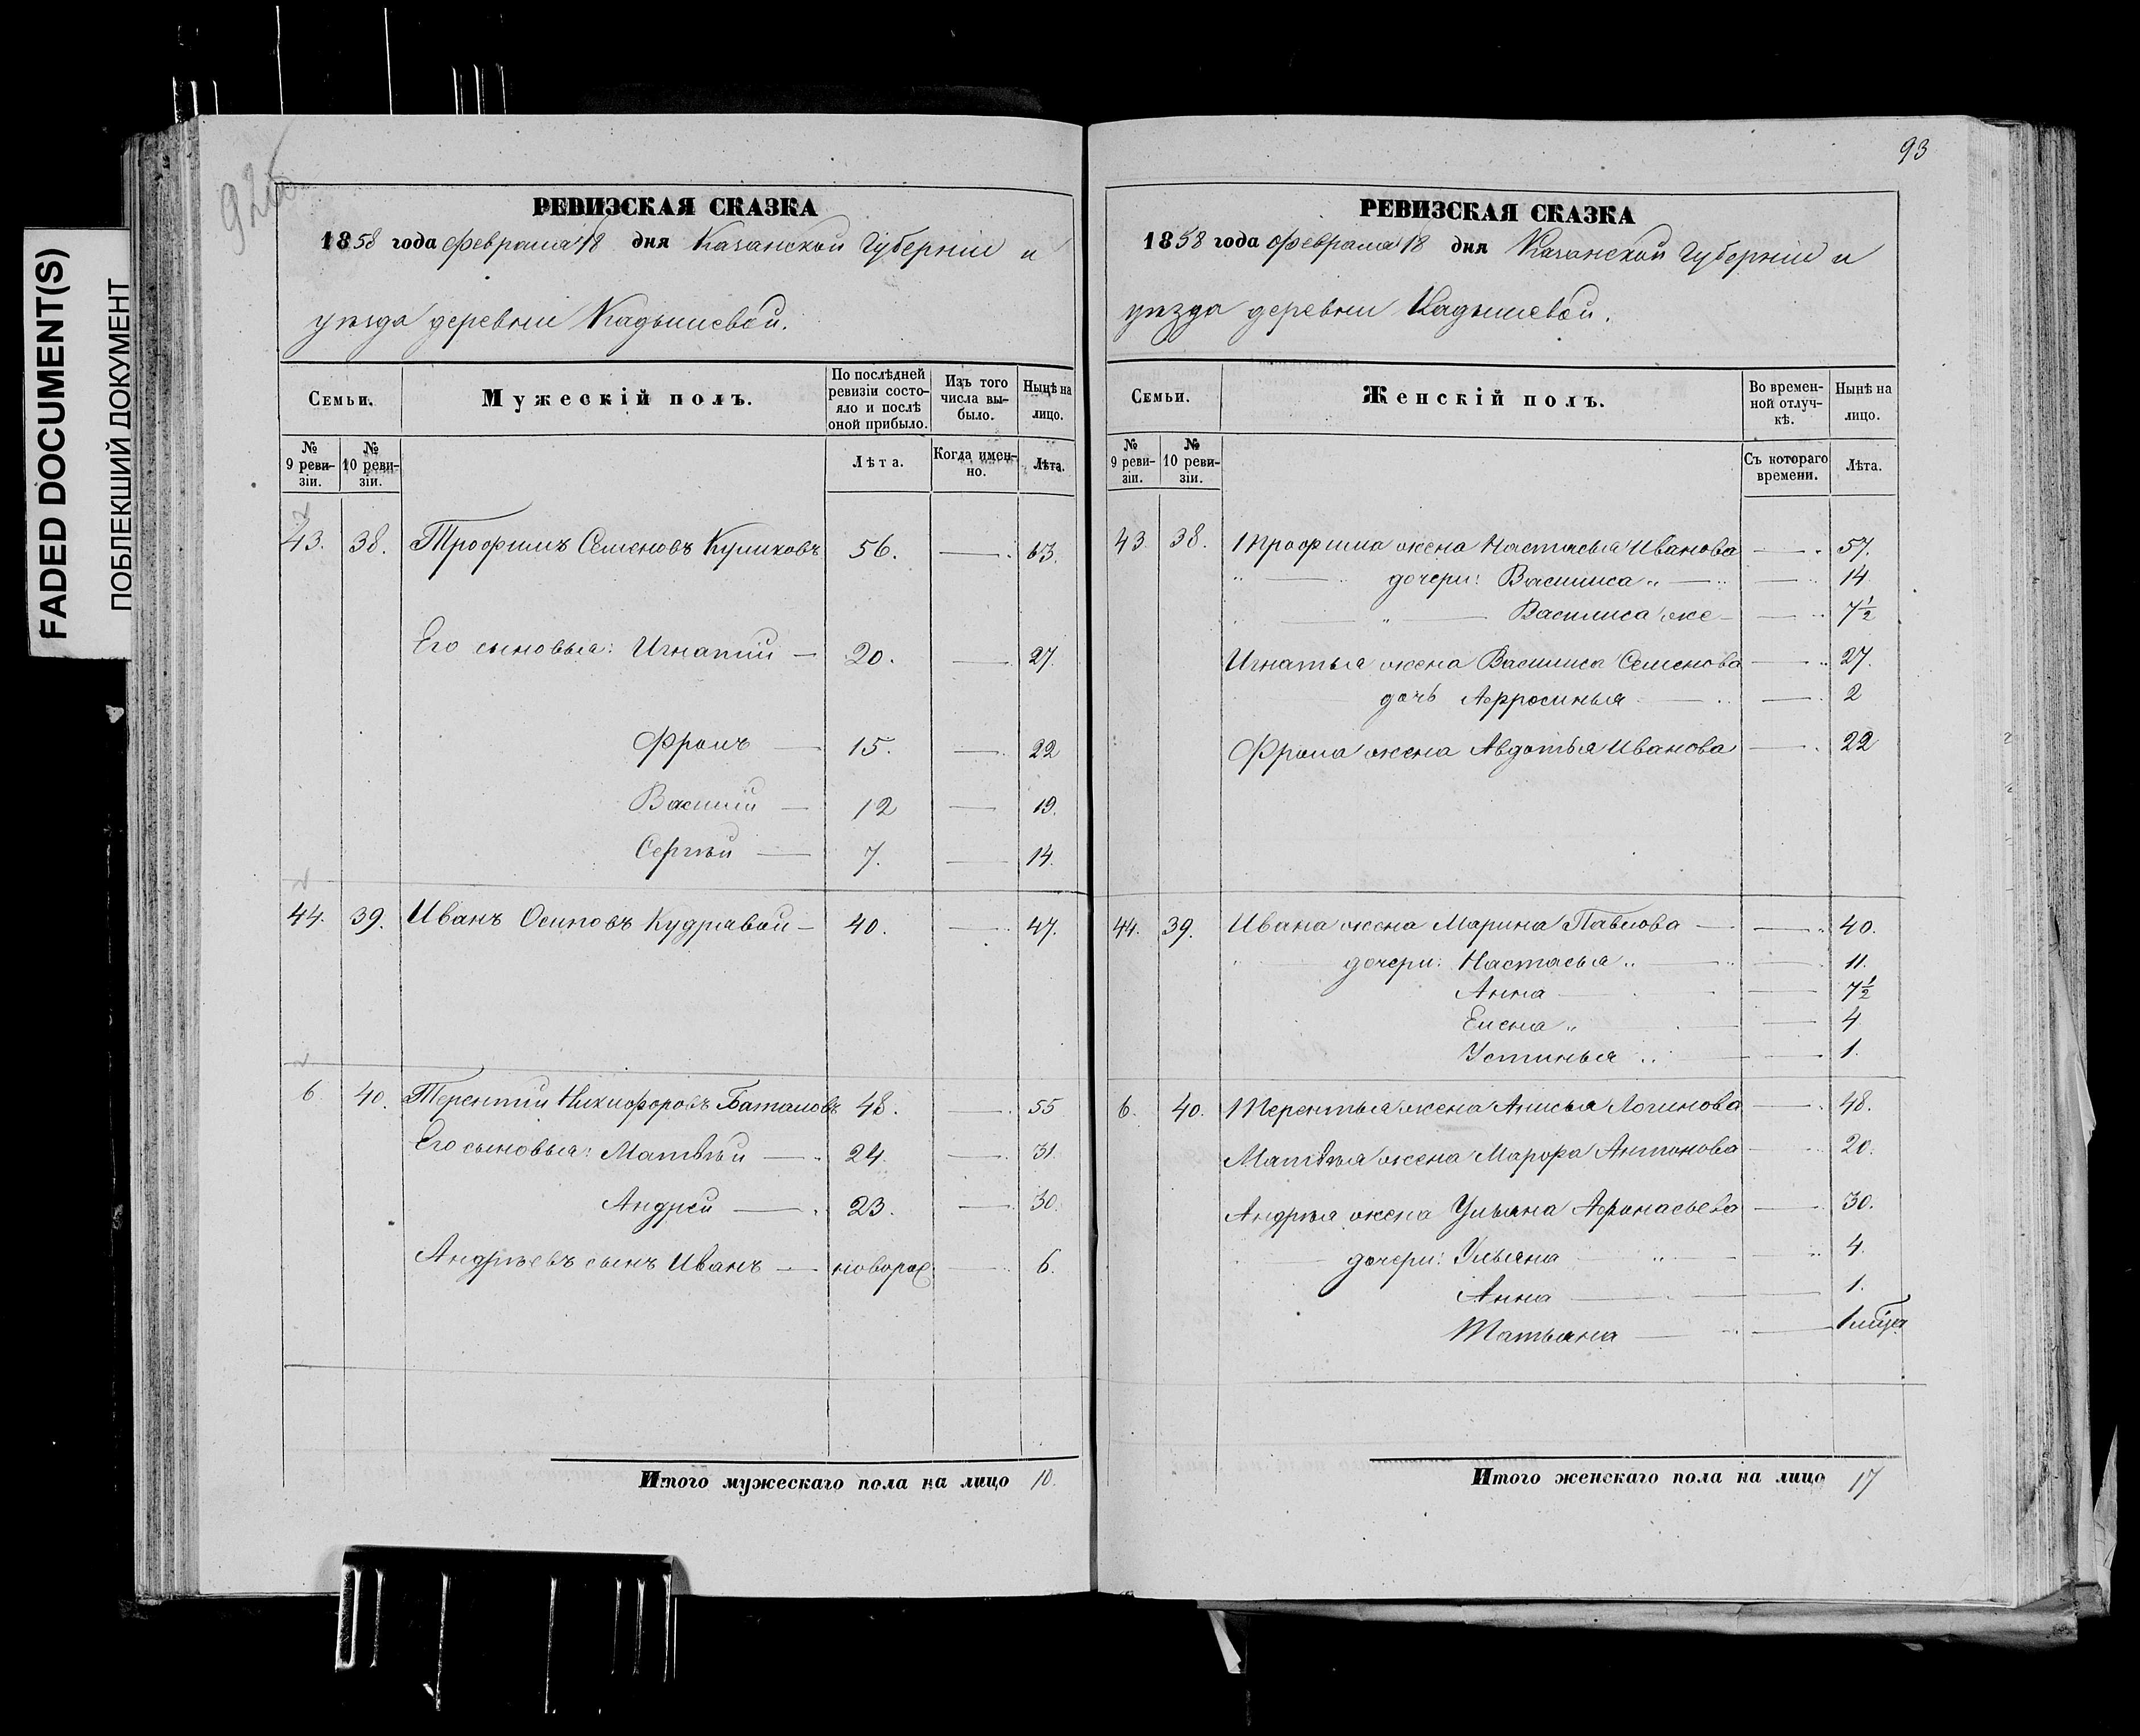 FADED DOCUMENT(S)
ПОБЛЕКШИЙ ДОКУМЕНТ
92об
РЕВИЗСКАЯ СКАЗКА
1858 года Февраля 18 дня Казанской Губерніи и
уѣзда деревни Кадышевой.
Семьи. Мужескій полъ. По послѣдней ревизіи состояло и послѣ оной прибыло. Изъ того числа выбыло. Нынѣ на лицо.
№ 9 ревизіи. № 10 ревизіи. Лѣта. Когда именно. Лѣта.
43. 38. Трофимъ Семеновъ Куликовъ 56. — 63.
Его сыновья: Игнатій — 20. — 27.
Фролъ — 15. — 22
Василій — 12 — 19.
Сергѣй — 7. — 14.
44. 39. Иванъ Осиповъ Кудрявой — 40. — 47.
6. 40. Терентій Никифоровъ Баталовъ 48. — 55
Его сыновья: Матвѣй — 24. — 31.
Андрей — 23. — 30.
Андрѣевъ сынъ Иванъ — новорож — 6.
Итого мужескаго пола на лицо 10.
93
РЕВИЗСКАЯ СКАЗКА
1858 года Февраля 18 дня Казанской Губерніи и
уѣзда деревни Кадышевой.
Семьи. Женскій полъ. Во временной отлучкѣ. Нынѣ на лицо.
№ 9 ревизіи. № 10 ревизіи. Съ котораго времени. Лѣта.
43 38. Трофима жена Настасья Иванова — 57.
" — " дочери: Василиса " — " — 14
" — " — Василиса же — — 7½
Игнатья жена Василиса Семенова — 27.
дочь Афросинья — 2
Фрола жена Авдотья Иванова — 22
44. 39. Ивана жена Марина Павлова — — 40.
" дочери: Настасья " — " — 11.
Анна — — 7½
Елена " — — 4
Устинья " — 1.
6. 40. Терентья жена Анисья Логинова — 48.
Матвѣя жена Марфа Антонова — 20.
Андрѣя жена Ульяна Афонасьева — 30.
— дочери: Ульяна " — " 4.
Анна — — 1.
Татьяна — " — 1 мѣсяц
Итого женскаго пола на лицо 17